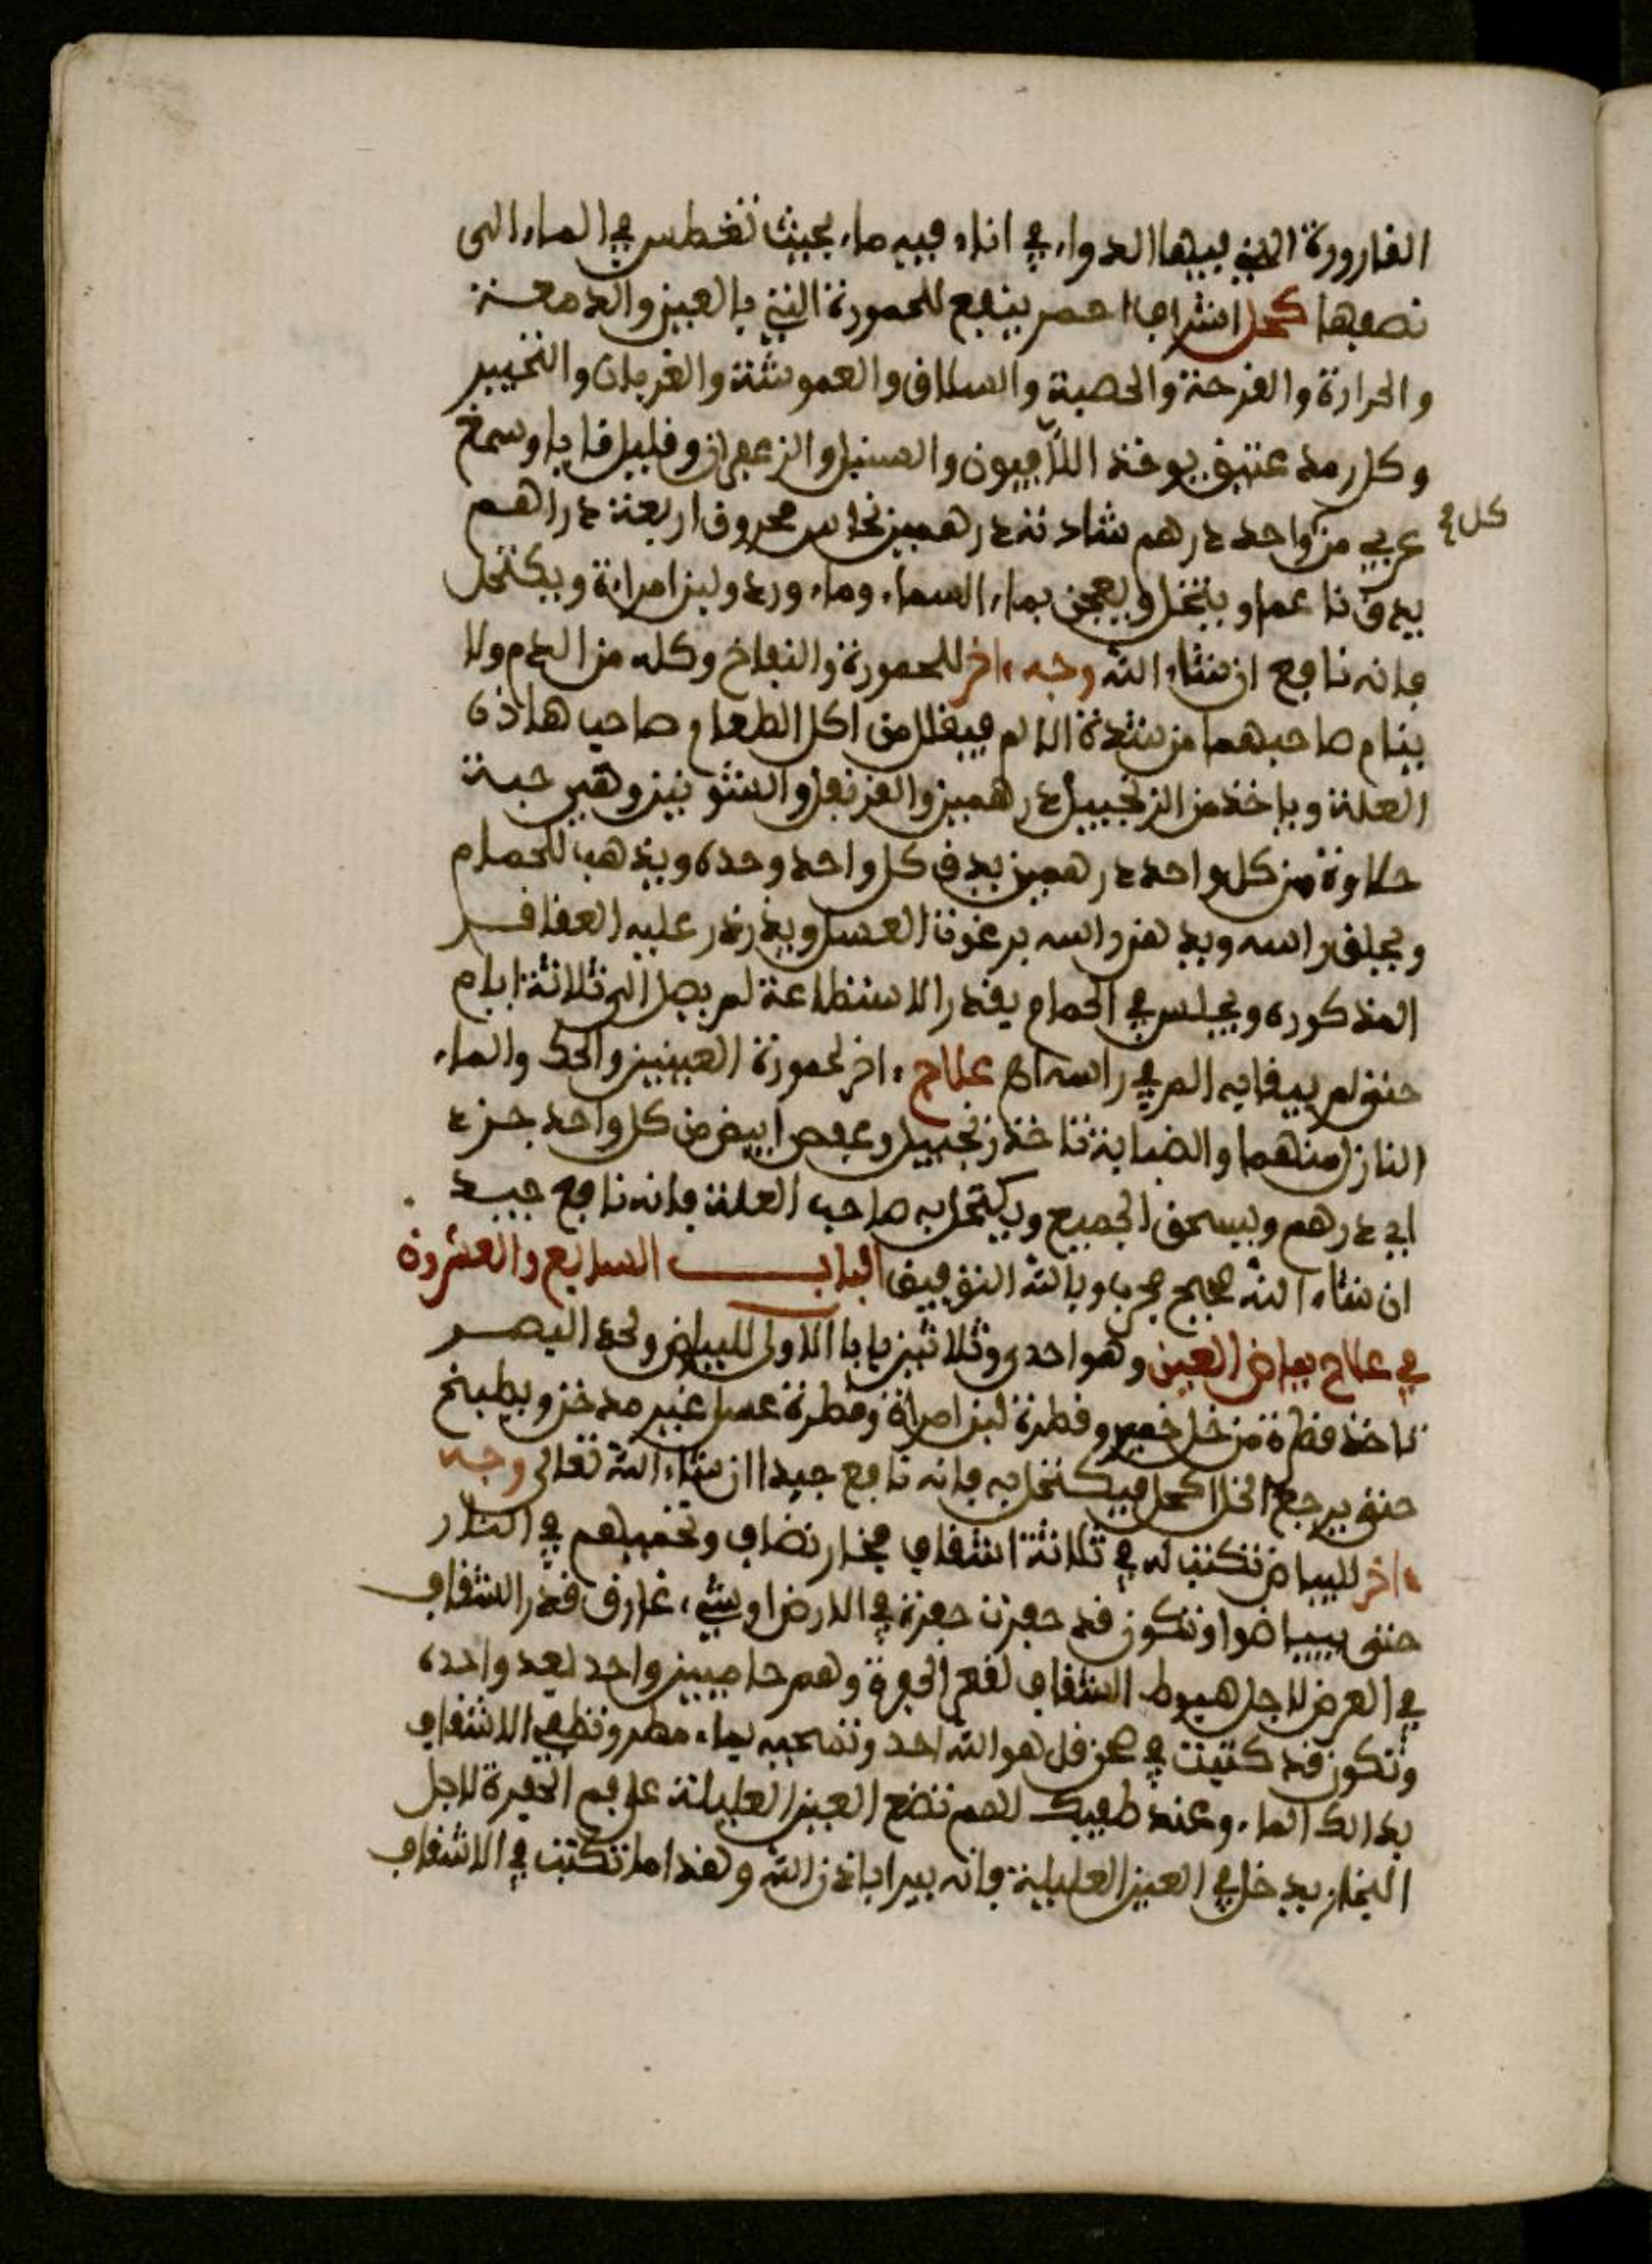 القارورة التي فيها الدواء في اناء فيه ماء بحيث تغطس في الماء الى
نصفها كحل اشراب احمر ينفع للحمورة التي بالعين والدمعة
والحرارة والقرحة والحصبة والسلاق والعموشة والغربان والتخيير
وكل رمد عتيق يوخذ اللافيون والسنبل والزعفران وقليل قابا وسمغ
كل
عربي من واحد درهم شادنه درهمين نحاس محروق اربعة دراهم
يدق ناعما وينخل ويعجن بماء السماء وماء ورد ولبن امراءة ويكتحل
فانه نافع ان شاء الله وجه ءاخر للحمورة والنفاخ وكله من الدم ولا
ينام صاحبهما من شدة الالم فيقلل من اكل الطعام صاحب هاذه
العلة وياخذ من الزنجبيل درهمين والقرنفل والشونيز وهي حبة
حلاوة من كل واحد درهمين يدق كل واحد وحده ويذهب للحمام
ويحلق راسه ويدهن راسه برغوة العسل ويذرذر عليه العقاقر
المذكوره ويجلس في الحمام بقدر الاستطاعة لم يصل الى ثلاثة ايام
حتى لم يبقا به الم في راسه اه علاج ءاخر لحمورة العينين والحك والماء
النازل منهما والضبابة تاخذ زنجبيل وعفص ابيض من كل واحد جزء
اي درهم ويسحق الجميع ويكتحل به صاحب العلة فانه نافع جيد
ان شاء الله صحيح مجرب وبالله التوفيق الباب السابع والعشرون
في علاج بياض العين وهو احدى وثلاثين بابا الاولى للبياض ولحد البصر
تاخذ قطرة من خل خمير وقطرة لبن امراة وقطرة عسل غير مدخن ويطبخ
حتى يرجع الخل اكحل فيكتحل به فانه نافع جيدا ان شاء الله تعالى وجه
ءاخر للبياض تكتب له في ثلاثة اشقاف فخار نضاف وتحميهم في النار
حتى يبياضوا وتكون قد حفرت حفرة في الارض اوشيء غارق قدر الشقاف
في العرض لاجل هبوط الشقاف لقعر الحفرة وهم حاميين واحد بعد واحد
وتكون قد كتبت في صحن قل هو الله احد وتمحيه بماء مطر وتطفي الاشقاف
بذالك الماء وعند طفيك لهم تضع العين العليلة على فم الحفرة لاجل
البخار يدخل في العين العليلة فانه يبرا باذن الله وهذا ما تكتب في الاشقاف